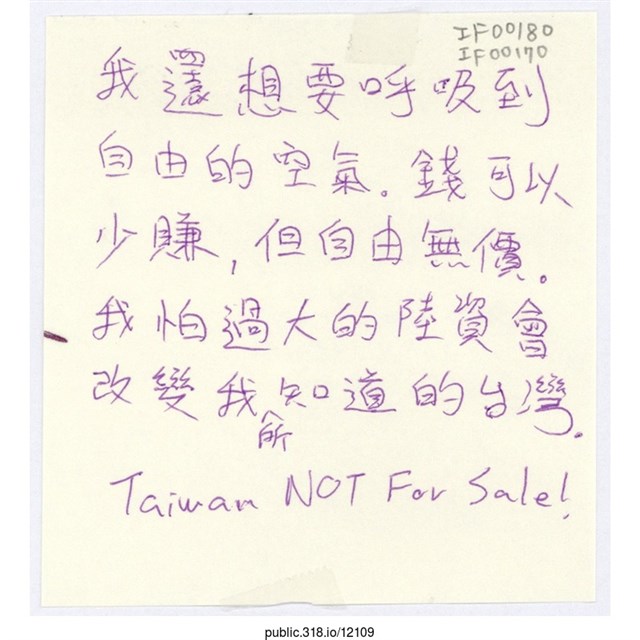 IF00180
IF00170
我還想要呼吸到
自由的空氣。錢可以
少賺,但自由無價。
我怕過大的陸資會
改變我所知道的台灣。
Taiwan NOT For Sale!
public.318.io/12109